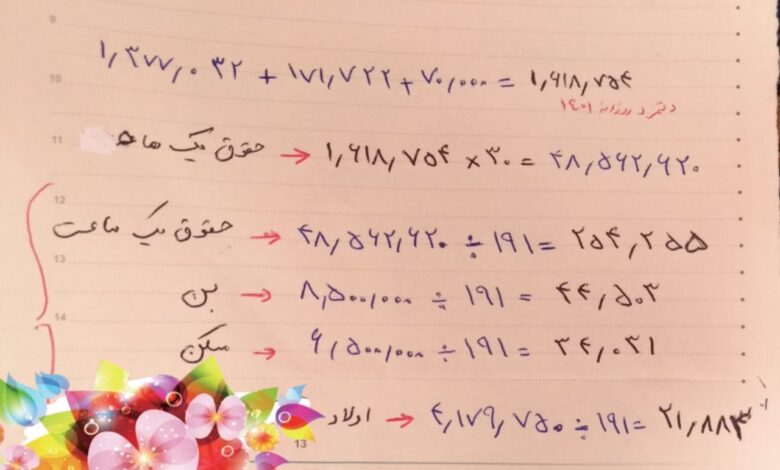 9
10
۱,۳۷۷,۰۳۲ + ۱۷۱,۷۲۲ + ۷۰,۰۰۰ = ۱,۶۱۸,۷۵۴
دستمزد روزانه ۱۴۰۱
11
حقوق یک ماه → ۱,۶۱۸,۷۵۴ × ۳۰ = ۴۸,۵۶۲,۶۲۰
12
حقوق یک ساعت → ۴۸,۵۶۲,۶۲۰ ÷ ۱۹۱ = ۲۵۴,۲۵۵
13
بن → ۸,۵۰۰,۰۰۰ ÷ ۱۹۱ = ۴۴,۵۰۳
14
مسکن → ۶,۵۰۰,۰۰۰ ÷ ۱۹۱ = ۳۴,۰۳۱
اولاد → ۴,۱۷۹,۷۵۰ ÷ ۱۹۱ = ۲۱,۸۸۳
13